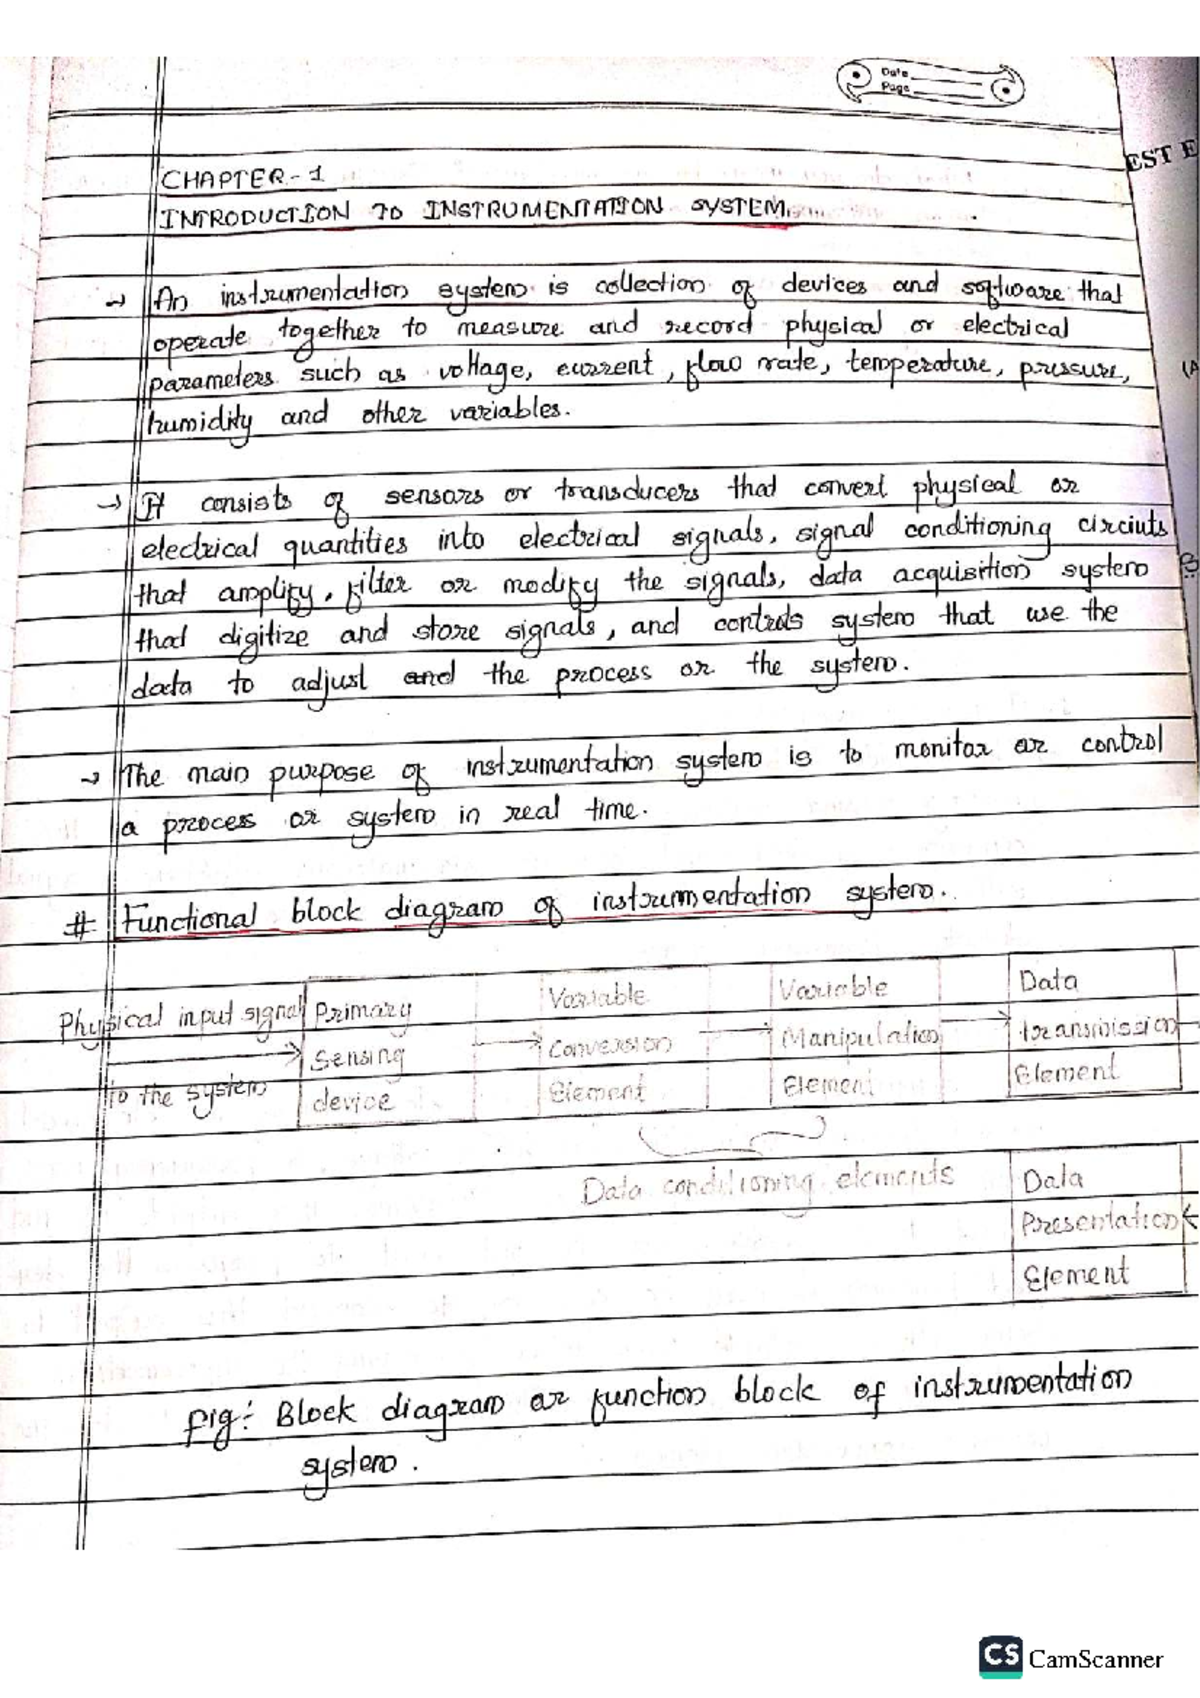 Date
Page
EST E
CHAPTER-1
INTRODUCTION TO INSTRUMENTATION SYSTEM.
→ An instrumentation system is collection of devices and software that
operate together to measure and record physical or electrical
parameters such as voltage, current, flow rate, temperature, pressure,
(A
humidity and other variables.
→ It consists of sensors or transducers that convert physical or
electrical quantities into electrical signals, signal conditioning circiuts
that amplify, filter or modify the signals, data acquisition system
that digitize and store signals, and controls system that use the
data to adjust and the process or the system.
→ The main purpose of instrumentation system is to monitor or control
a process or system in real time.
# Functional block diagram of instrumentation system.
Physical input signal
to the system
Primary
Sensing
device
Variable
Conversion
Element
Variable
Manipulation
Element
Data
transmission
Element
Data conditioning elements
Data
Presentation
Element
fig:- Block diagram or function block of instrumentation
system.
CS CamScanner